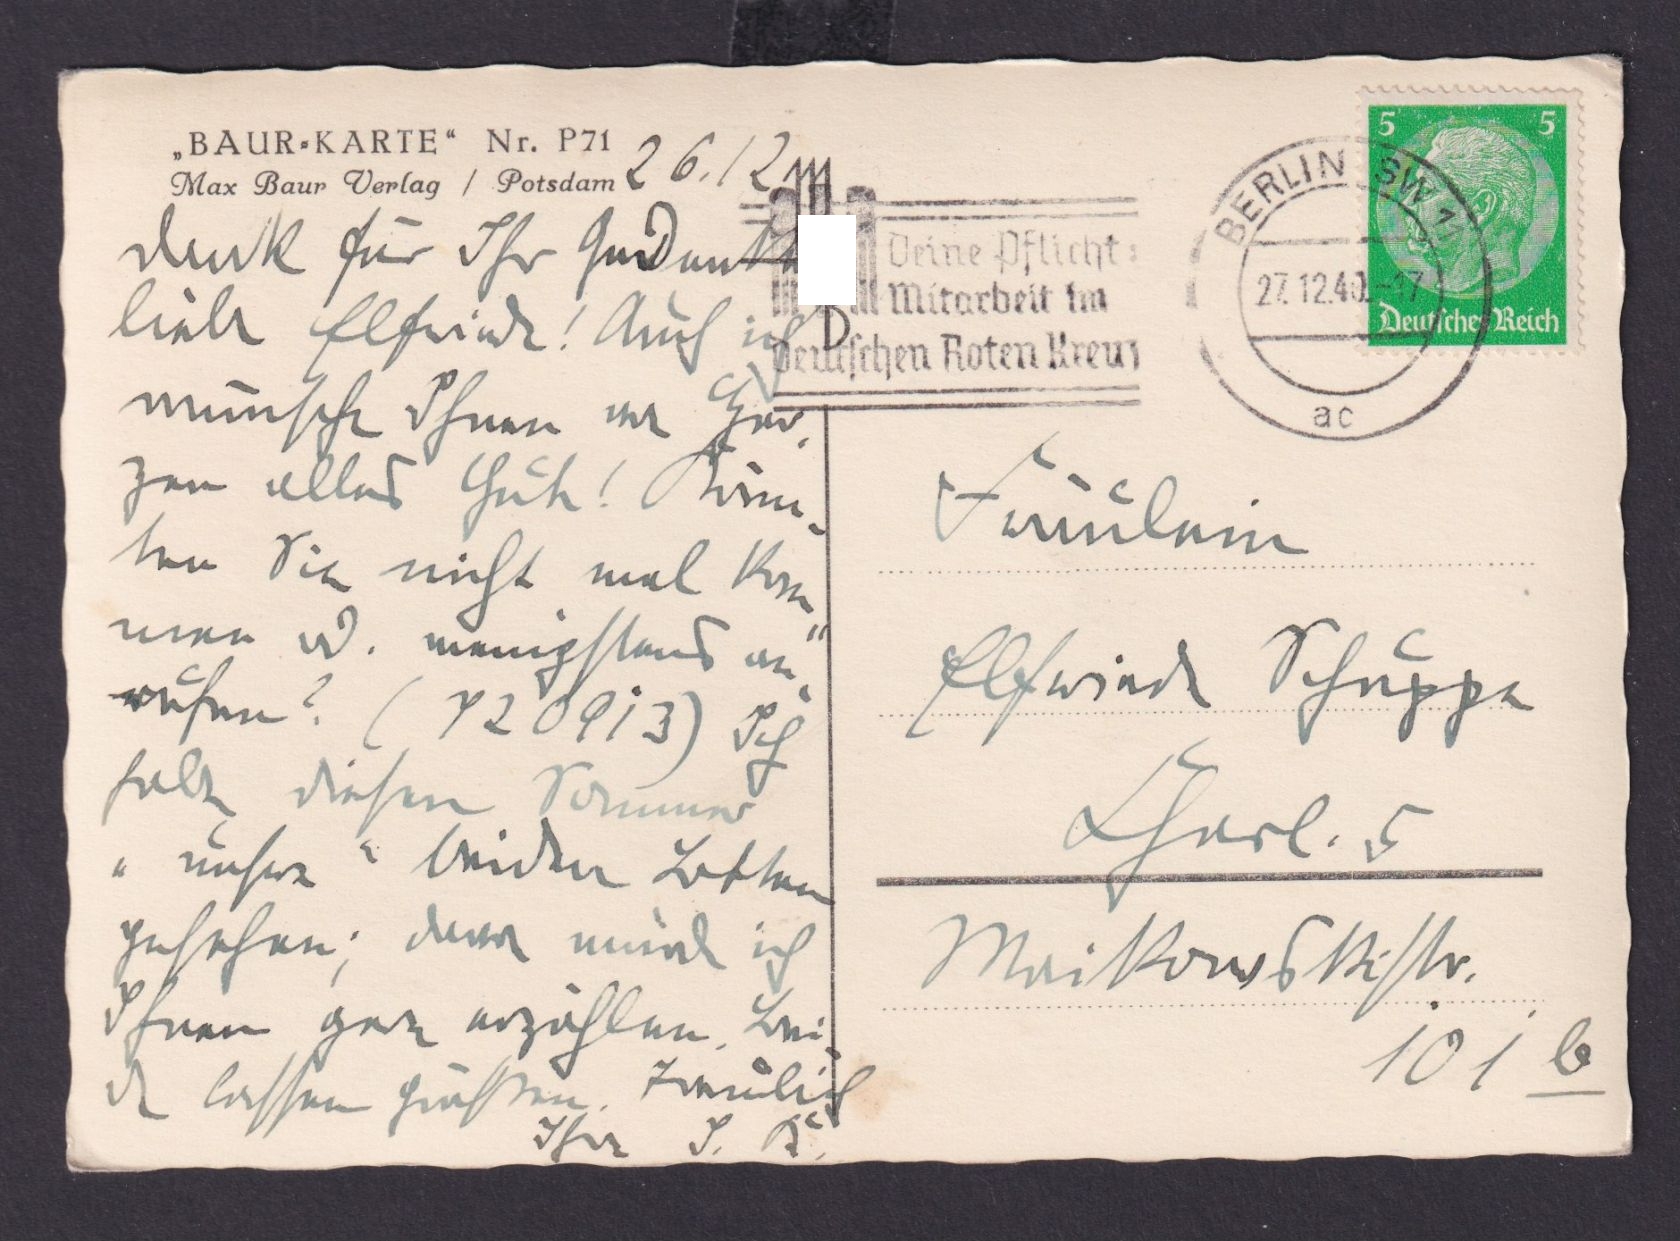 „BAUR-KARTE“ Nr. P71
Max Baur Verlag / Potsdam
26.12
Dank für Ihr Gedenken
liebe Elfriede! Auch ich
wünsche Ihnen von Her-
zen alles Gute! Könn-
ten Sie nicht mal kom-
men od. wenigstens an-
rufen? (720913) Ich
habe diesen Sommer
"unsere" beiden Lotten
gesehen; davon würde ich
Ihnen gern erzählen. Bei-
de lassen grüßen. Treulich
Ihre I. K.
Deine Pflicht:
Mitarbeit im
Deutschen Roten Kreuz
BERLIN SW 11
27.12.40.-17
ac
5 5
Deutsches Reich
Fräulein
Elfriede Schuppe
Charl. 5
Maikowskistr.
101 b